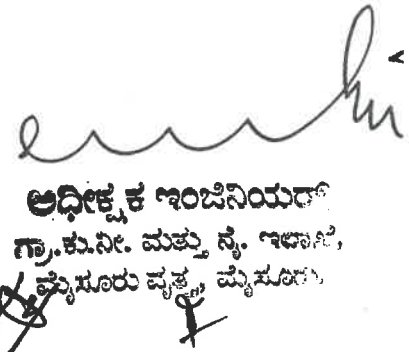 ಅಧೀಕ್ಷಕ ಇಂಜಿನಿಯರ್
ಗ್ರಾ.ಕು.ನೀ. ಮತ್ತು ನೈ. ಇಲಾಖೆ,
ಮೈಸೂರು ವೃತ್ತ, ಮೈಸೂರು